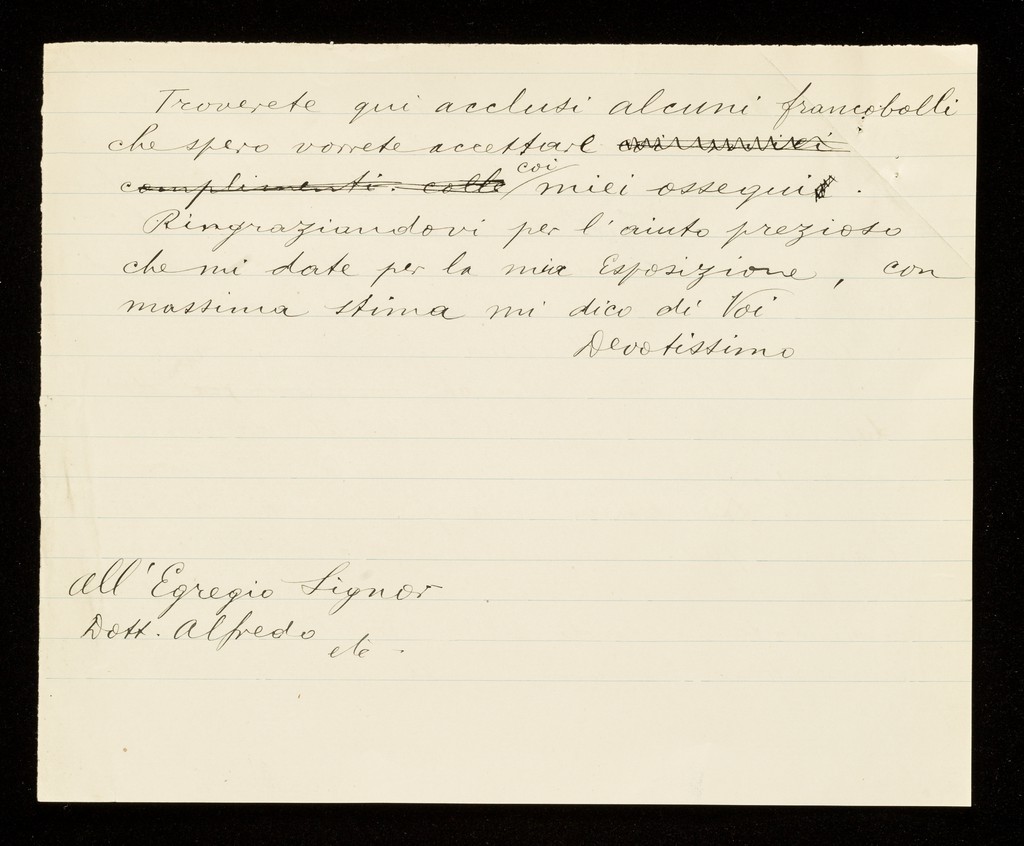 Troverete qui acclusi alcuni francobolli
che spero vorrete accettare coi
complimenti. colle coi miei ossequi.
Ringraziandovi per l'aiuto prezioso
che mi date per la mia Esposizione, con
massima stima mi dico di Voi
Devotissimo
all'Egregio Signor
Dott. Alfredo
etc.